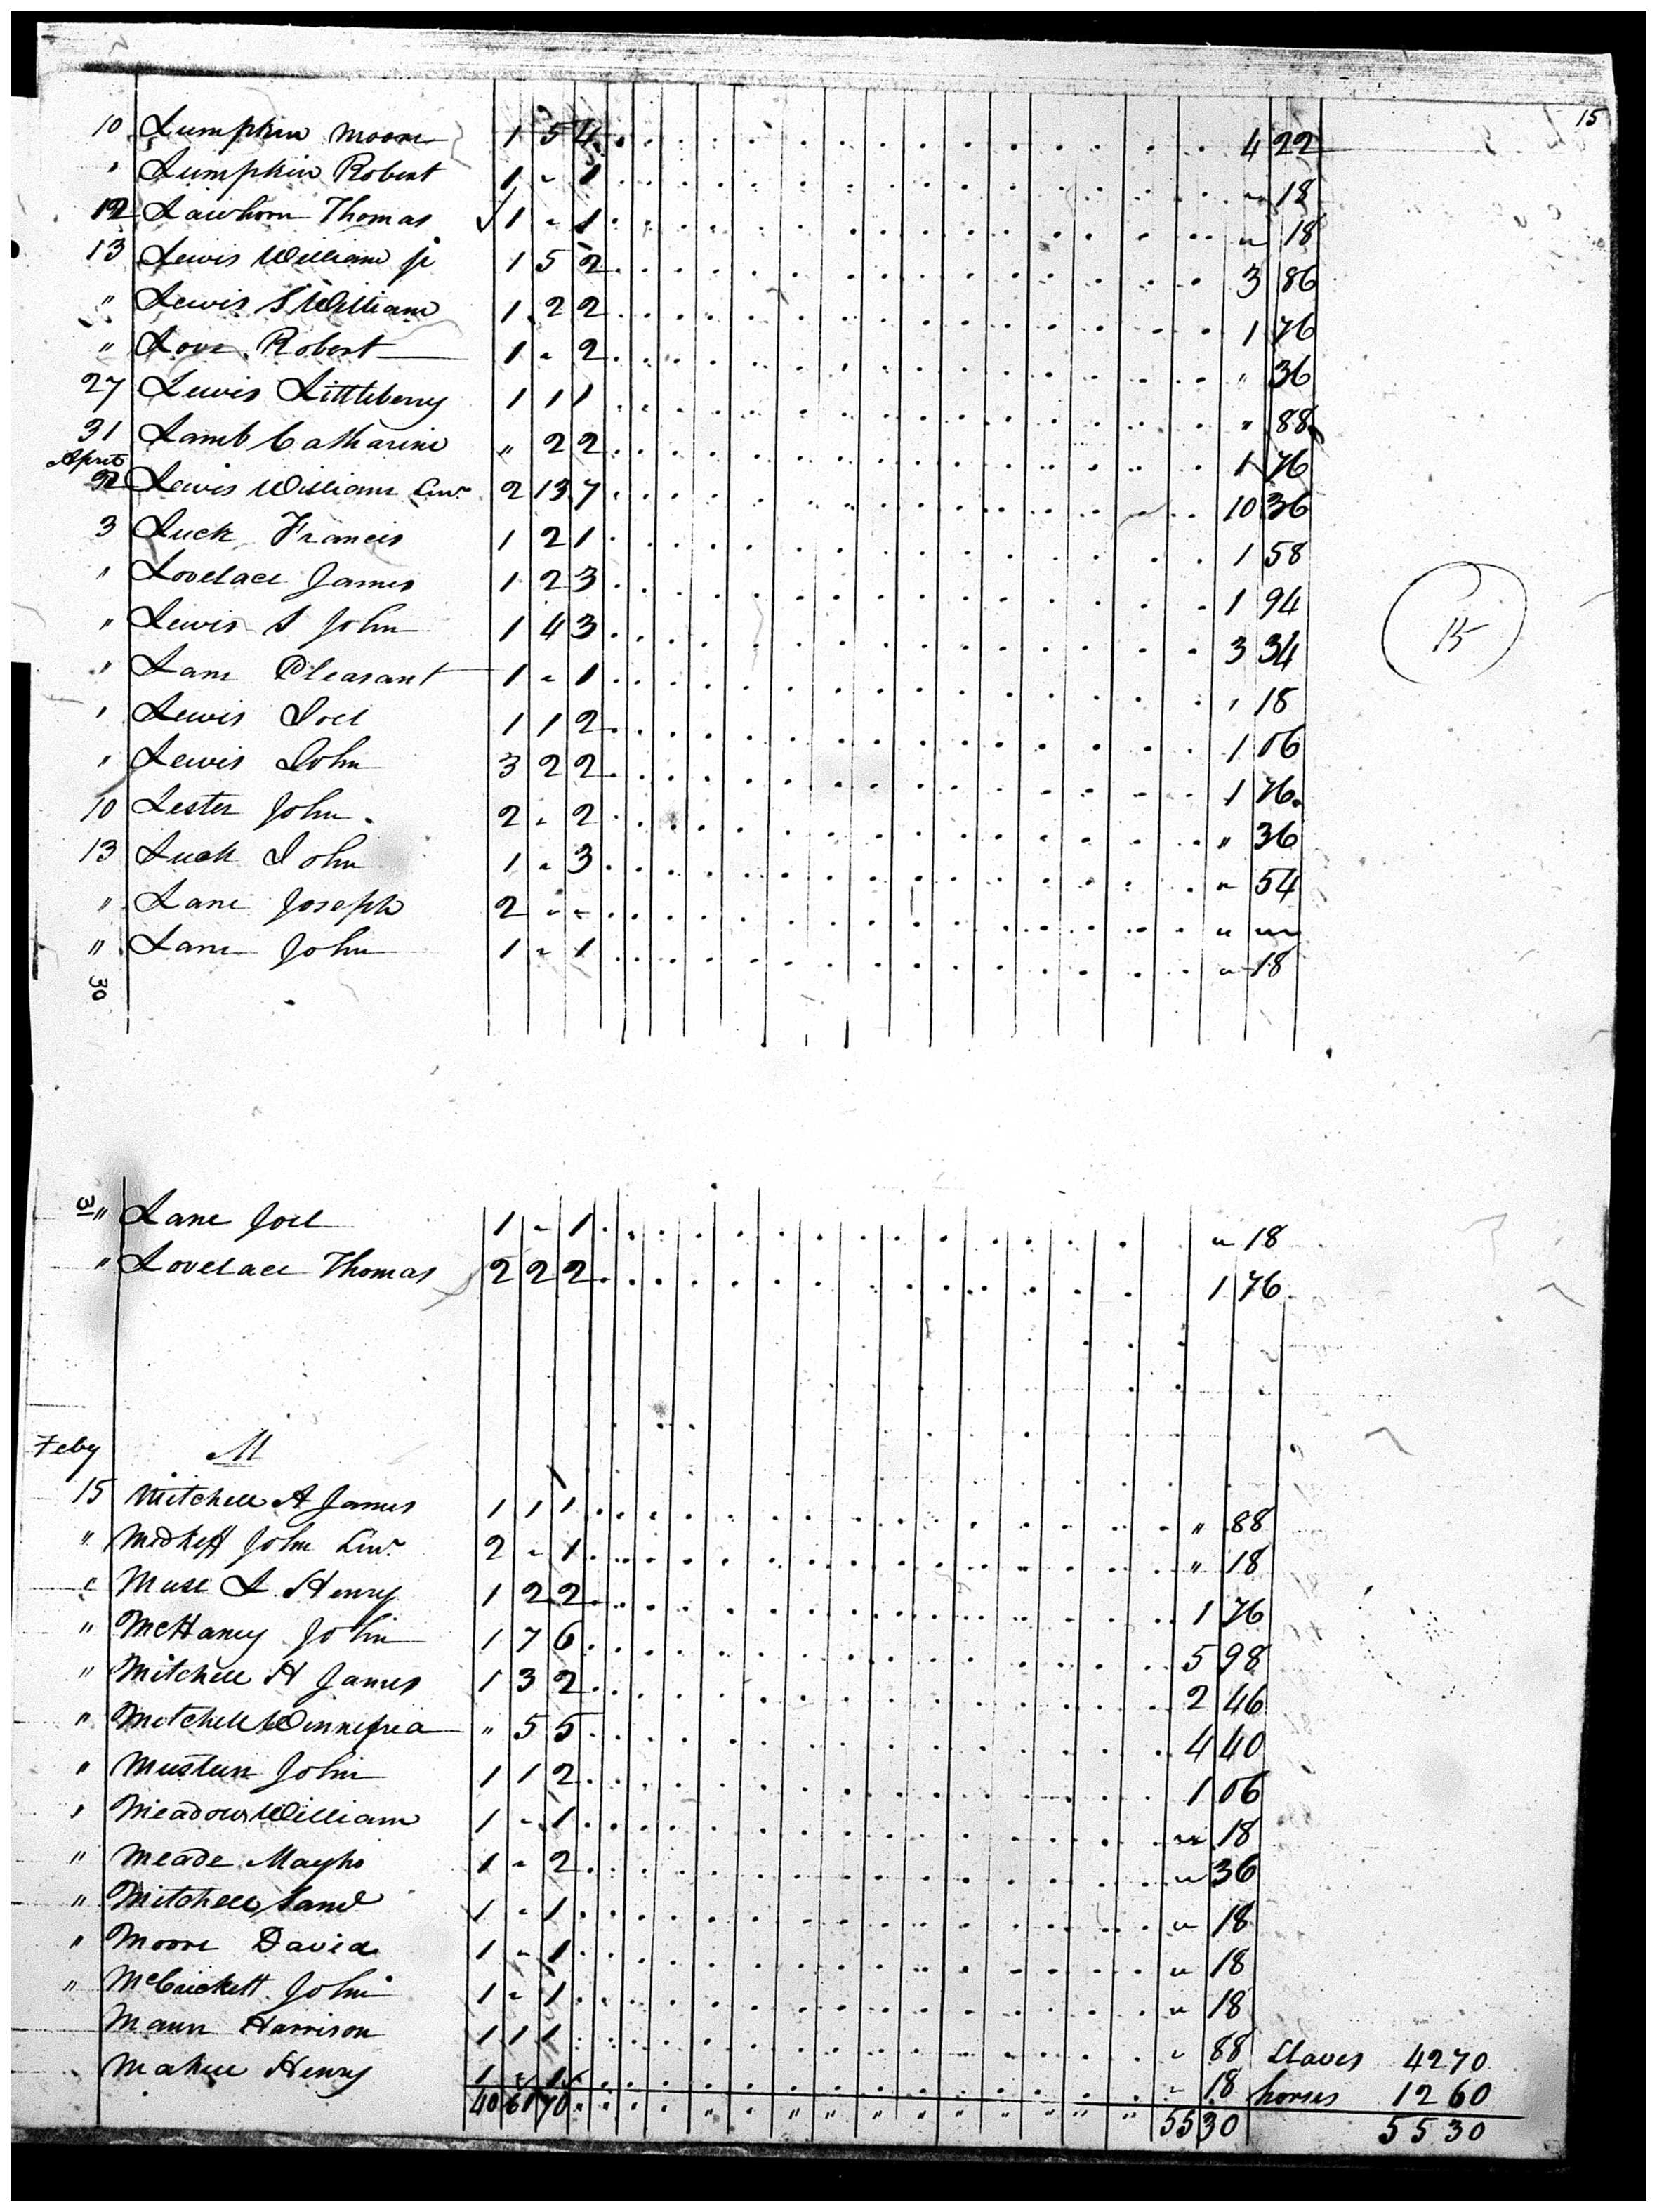 15
10 Lumpkin Moore 1 5 4 4 22
" Lumpkin Robert 1 " 1 " 18
12 Lawhorn Thomas 1 " 1 " 18
13 Lewis William jr 1 5 2 3 86
" Lewis S William 1 2 2 1 76
" Love Robert 1 " 2 " 36
27 Lewis Littleberry 1 1 1 " 88
31 Lamb Catharine " 2 2 1 76
April
2 Lewis William 2 13 7 10 36
3 Luck Francis 1 2 1 1 58
" Lovelace James 1 2 3 1 94
" Lewis S John 1 4 3 3 34
" Lane Pleasant 1 " 1 " 18
" Lewis Joel 1 1 2 1 06
" Lewis John 3 2 2 1 76
10 Lester John 2 " 2 " 36
13 Luck John 1 " 3 " 54
" Lane Joseph 2 " " " "
" Lane John 1 " 1 " 18
30
15
31
" Lane Joel 1 " 1 " 18
" Lovelace Thomas 2 2 2 1 76
Feby M
15 Mitchell A James 1 1 1 " 88
" Midkiff John 2 " 1 " 18
" Muse L Henry 1 2 2 1 76
" McHaney John 1 7 6 5 98
" Mitchell H James 1 3 2 2 46
" Mitchell " 5 5 4 40
" Mustein John 1 1 2 1 06
" Meadows William 1 " 1 " 18
" Meade Mayho 1 " 2 " 36
" Mitchell Saml 1 " 1 " 18
" Moore David 1 " 1 " 18
" McCrickett John 1 " 1 " 18
Maun Harrison 1 1 1 " 88 Slaves 42 70
Mahue Henry 1 " 1 " 18 horses 12 60
40 61 70 " " " " " " " " " " " " 55 30 55 30